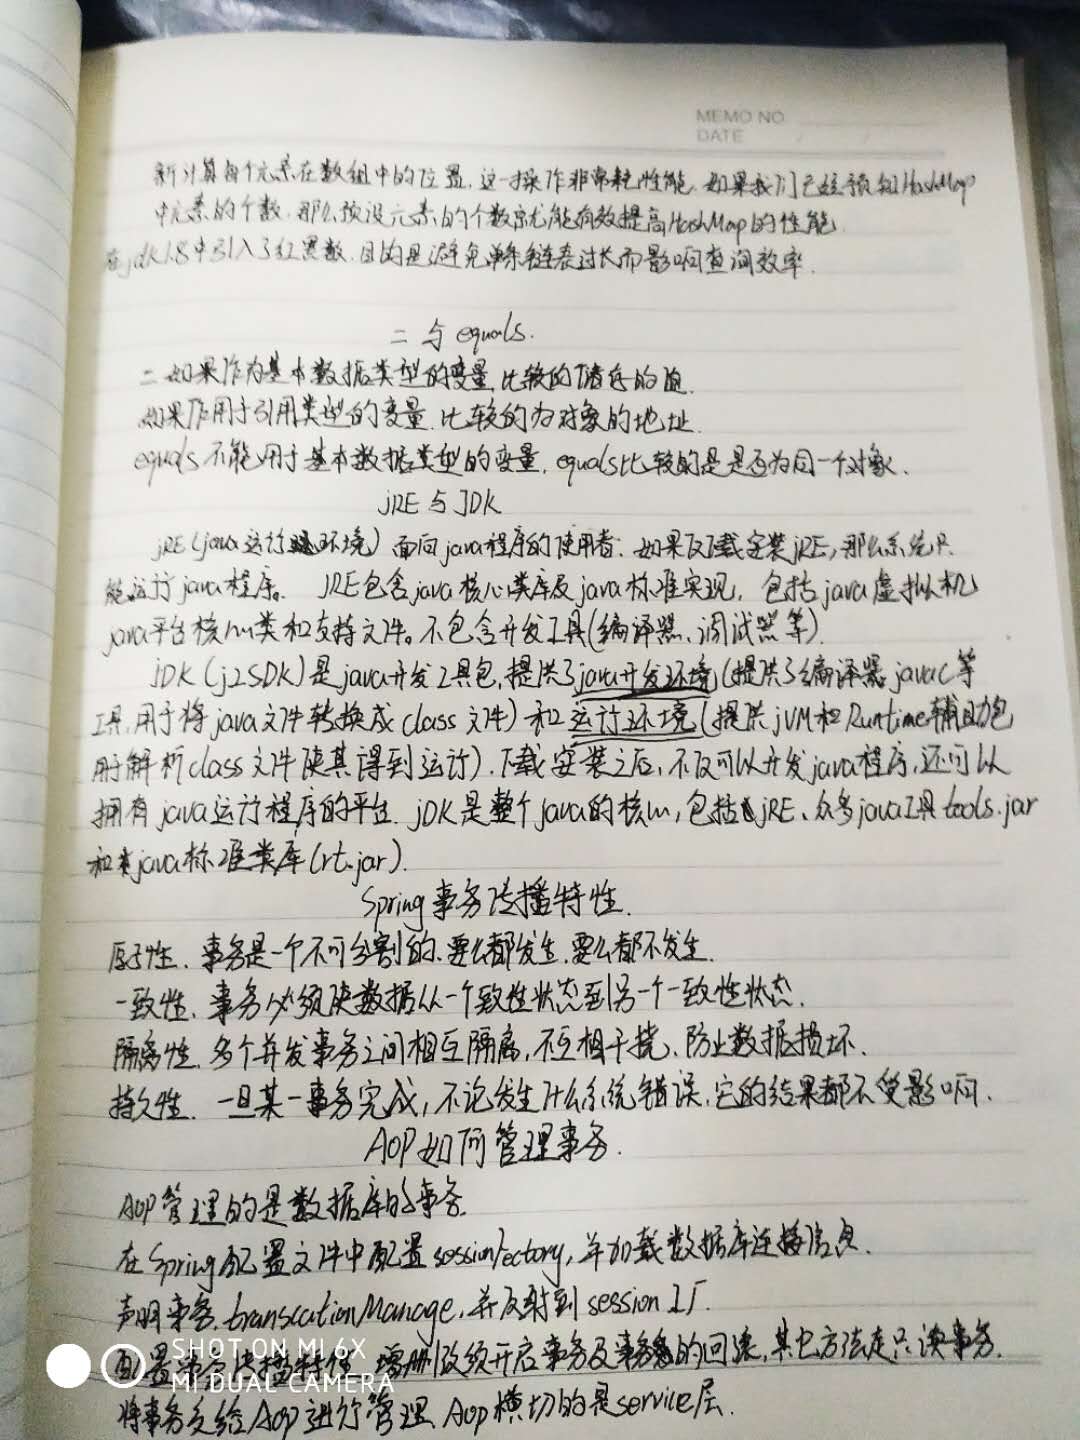 MEMO NO.
DATE / /
新计算每个元素在数组中的位置,这一操作非常耗性能,如果我们已经预知HashMap
中元素的个数,那么预设元素的个数就能有效提高HashMap的性能.
在jdk1.8中引入了红黑数,目的是避免单条链表过长而影响查询效率.
二 与 equals.
二 如果作为基本数据类型的变量,比较的储存的值.
如果作用于引用类型的变量,比较的为对象的地址.
equals不能用于基本数据类型的变量,equals比较的是是否为同一个对象.
jRE与JDK
jRE(java运行环境)面向java程序的使用者.如果仅下载安装jRE,那么系统只
能运行java程序。JRE包含java核心类库及java标准实现,包括java虚拟机
java平台核心类和支持文件。不包含开发工具(编译器、调试器等).
JDK(j2SDK)是java开发工具包,提供了java开发环境(提供了编译器javac等
工具,用于将java文件转换成class文件)和运行环境(提供jVM和Runtime辅助包
用于解析class文件使其得到运行).下载安装之后,不仅可以开发java程序,还可以
拥有java运行程序的平台.jDK是整个java的核心,包括jRE、众多java工具tools.jar
和java标准类库(rt.jar).
Spring事务传播特性.
原子性.事务是一个不可分割的.要么都发生,要么都不发生.
一致性.事务必须使数据从一个致性状态到另一个一致性状态.
隔离性.多个并发事务之间相互隔离,不互相干扰、防止数据损坏.
持久性.一旦某一事务完成,不论发生什么系统错误,它的结果都不受影响.
AOP如何管理事务.
AOP管理的是数据库的事务.
在Spring配置文件中配置sessionfectory,并加载数据库连接信息.
声明事务.transcationManage,并反射到session工厂.
配置事务传播特性 增删改须开启事务及事务的回滚,其它方法走只读事务.
将事务交给Aop进行管理 Aop横切的是service层.
SHOT ON MI 6X
MI DUAL CAMERA